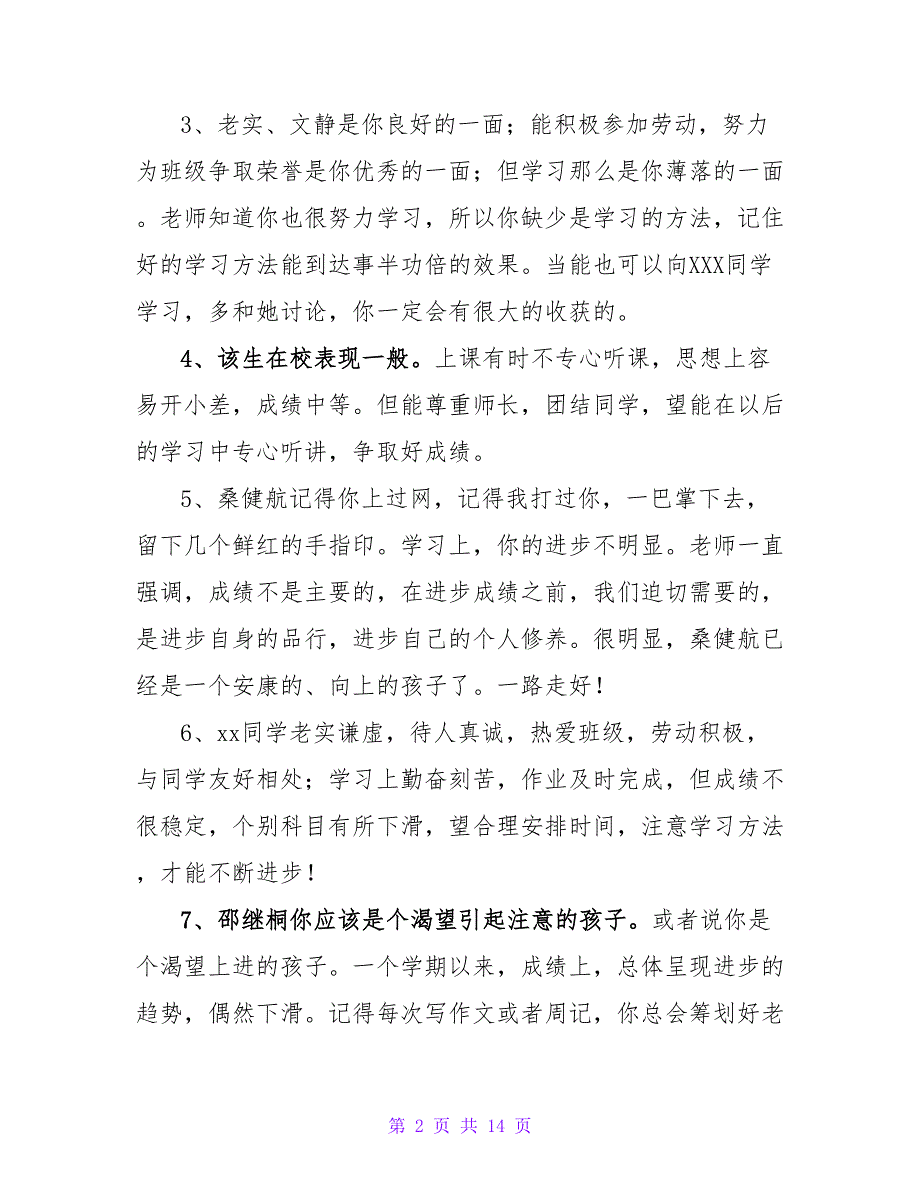 3、老实、文静是你良好的一面；能积极参加劳动，努力
为班级争取荣誉是你优秀的一面；但学习那么是你薄落的一面
。老师知道你也很努力学习，所以你缺少是学习的方法，记住
好的学习方法能到达事半功倍的效果。当能也可以向XXX同学
学习，多和她讨论，你一定会有很大的收获的。
4、该生在校表现一般。上课有时不专心听课，思想上容
易开小差，成绩中等。但能尊重师长，团结同学，望能在以后
的学习中专心听讲，争取好成绩。
5、桑健航记得你上过网，记得我打过你，一巴掌下去，
留下几个鲜红的手指印。学习上，你的进步不明显。老师一直
强调，成绩不是主要的，在进步成绩之前，我们迫切需要的，
是进步自身的品行，进步自己的个人修养。很明显，桑健航已
经是一个安康的、向上的孩子了。一路走好！
6、xx同学老实谦虚，待人真诚，热爱班级，劳动积极，
与同学友好相处；学习上勤奋刻苦，作业及时完成，但成绩不
很稳定，个别科目有所下滑，望合理安排时间，注意学习方法
，才能不断进步！
7、邵继桐你应该是个渴望引起注意的孩子。或者说你是
个渴望上进的孩子。一个学期以来，成绩上，总体呈现进步的
趋势，偶然下滑。记得每次写作文或者周记，你总会筹划好老
第 2 页 共 14 页